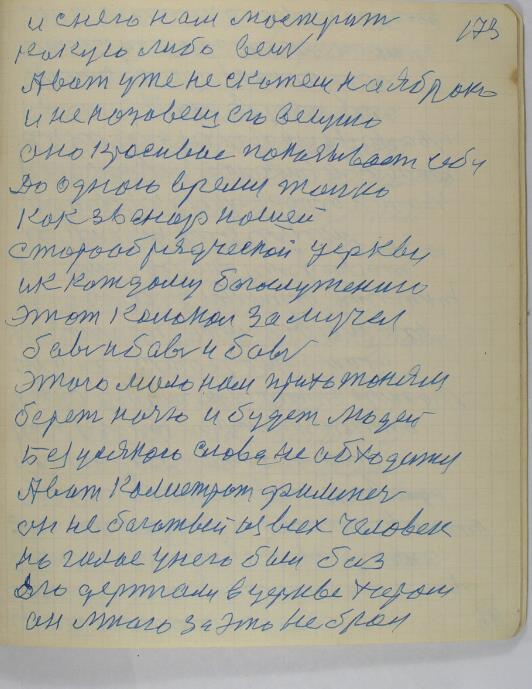 и снего нам мостерит
173
какую либо вещ
Авот уже не скажеш на яброкь
и не назовеш его вещию
оно красивые показывает себя
До одного время только
Как звонар нашей
старообрядческой церкви
ик каждому богомужению
Этот Колокол замучел
бавь и бавь и бавь
Этого мало нам прихожоням
берет начю и будет людей
Без усякого слова не обходжи
Авот Колистрат филипеч
он не багатый из всех человек
но голос унего был баз
Его держали в церкве хором
он много за это не брал